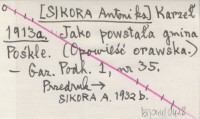 [SIKORA Antoni ks] Karzeł
1913a. Jako powstała gmina
Pośkle. (Opowieść orawska.)
– Gaz. Podh. 1, nr 35.
Przedruk →
SIKORA A. 1932b.